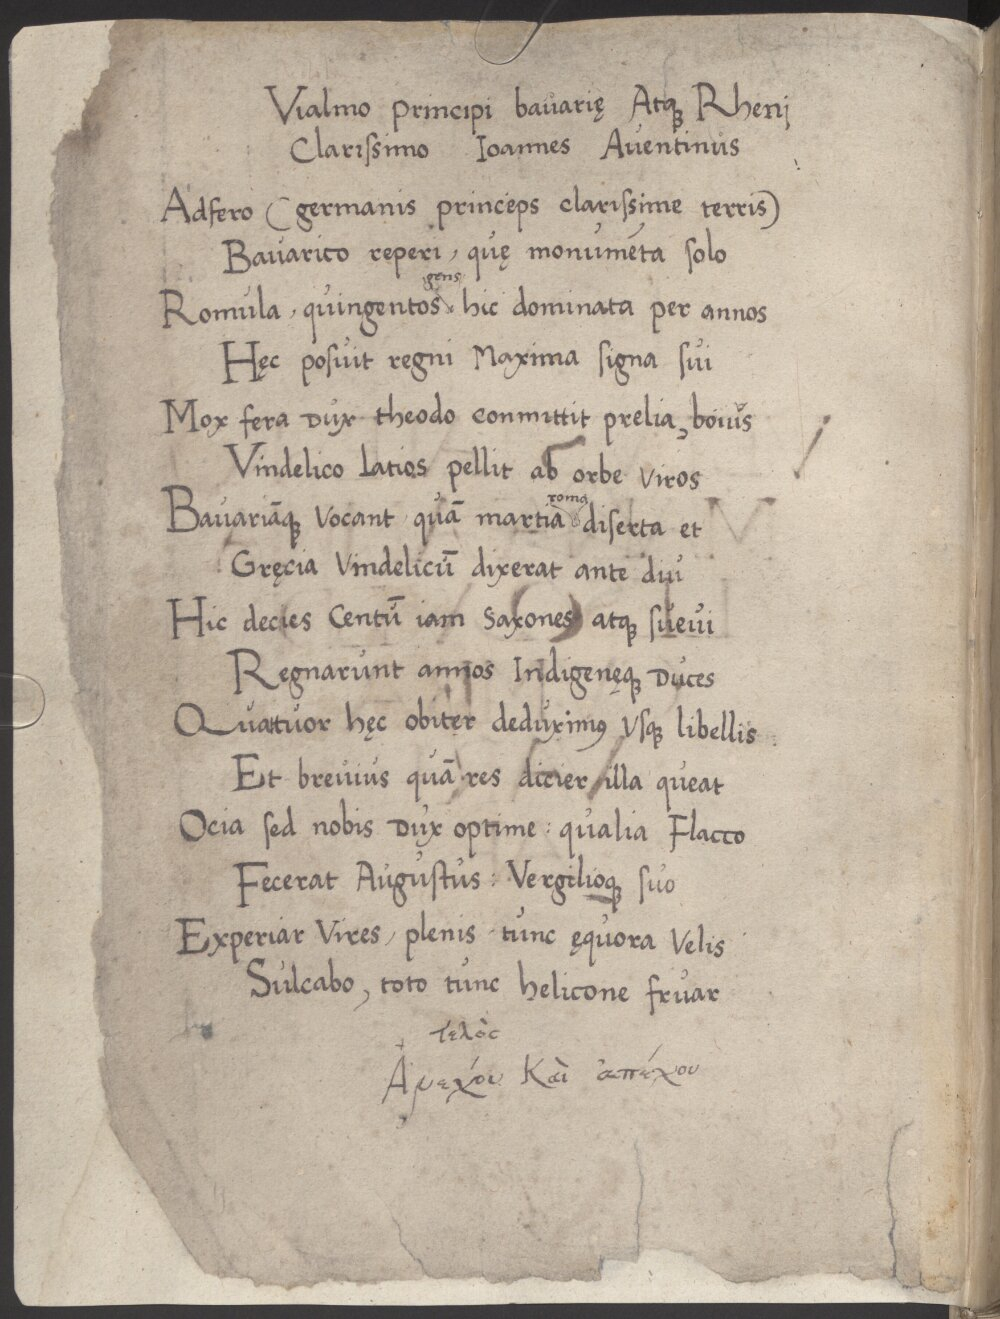 Vialmo principi bavarię Atqꝫ Rheni
Clarissimo Ioannes Aventinus
Adfero (germanis princeps clarissime terris)
Bavarico reperi, quę monumēta solo
Romula, quingentos gens hic dominata per annos
Hęc posuit regni Maxima signa sui
Mox fera dux theodo conmittit prelia, boius
Vindelico Latios pellit ab orbe viros
Bavariāqꝫ vocant quā martia roma diserta et
Gręcia Vindelicū dixerat ante diu
Hic decies Centū iam saxones atqꝫ suevi
Regnarunt annos Indigenęqꝫ Duces
Quattuor hęc obiter deduximꝰ vsqꝫ libellis
Et brevius quā res dicier illa queat
Ocia sed nobis Dux optime : qualia Flacco
Fecerat Augustus : Vergilioqꝫ suo
Experiar vires, plenis tunc ęquora velis
Sulcabo, toto tunc helicone fruar
τέλὸς
Ἀνεχόυ Καὶ ἀπέχου